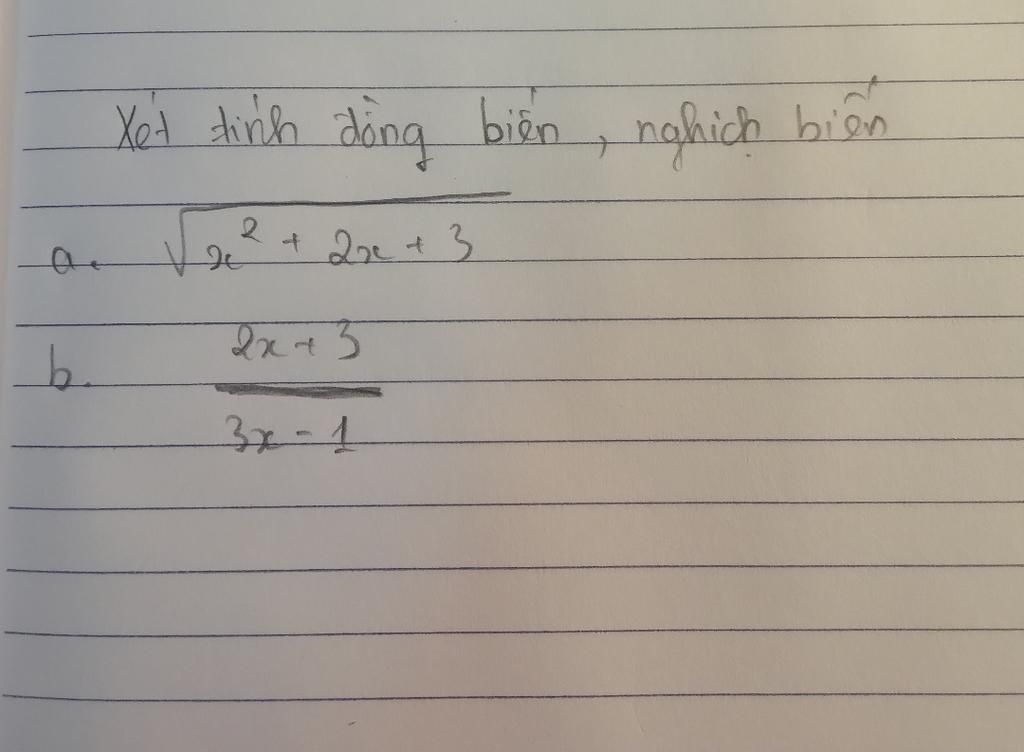 Xét tính đồng biến, nghịch biến
a. √x² + 2x + 3
b. 2x + 3
3x - 1